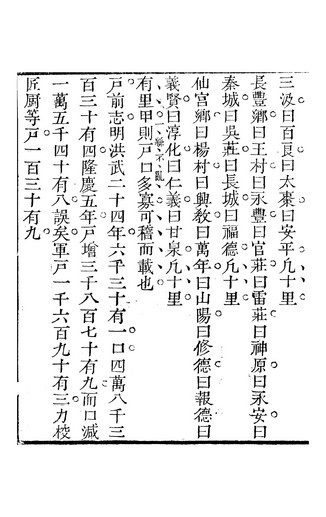 三汲曰百良曰太棗曰安平凡十里
長豐鄉曰王村曰永豐曰官莊曰雷莊曰神原曰永安曰
秦城曰吳莊曰長城曰福德凡十里
仙宮鄉曰楊村曰興教曰萬年曰山陽曰修德曰報德曰
義賢曰淳化曰仁義曰甘泉凡十里
一絲不亂
有里甲則戶口多寡可稽而載也
戶前志明洪武二十四年六千三十有一口四萬八千三
百三十有四隆慶五年戶增三千八百七十有九而口減
一萬五千四十有八誤矣軍戶一千六百九十有三力校
匠厨等戶一百三十有九